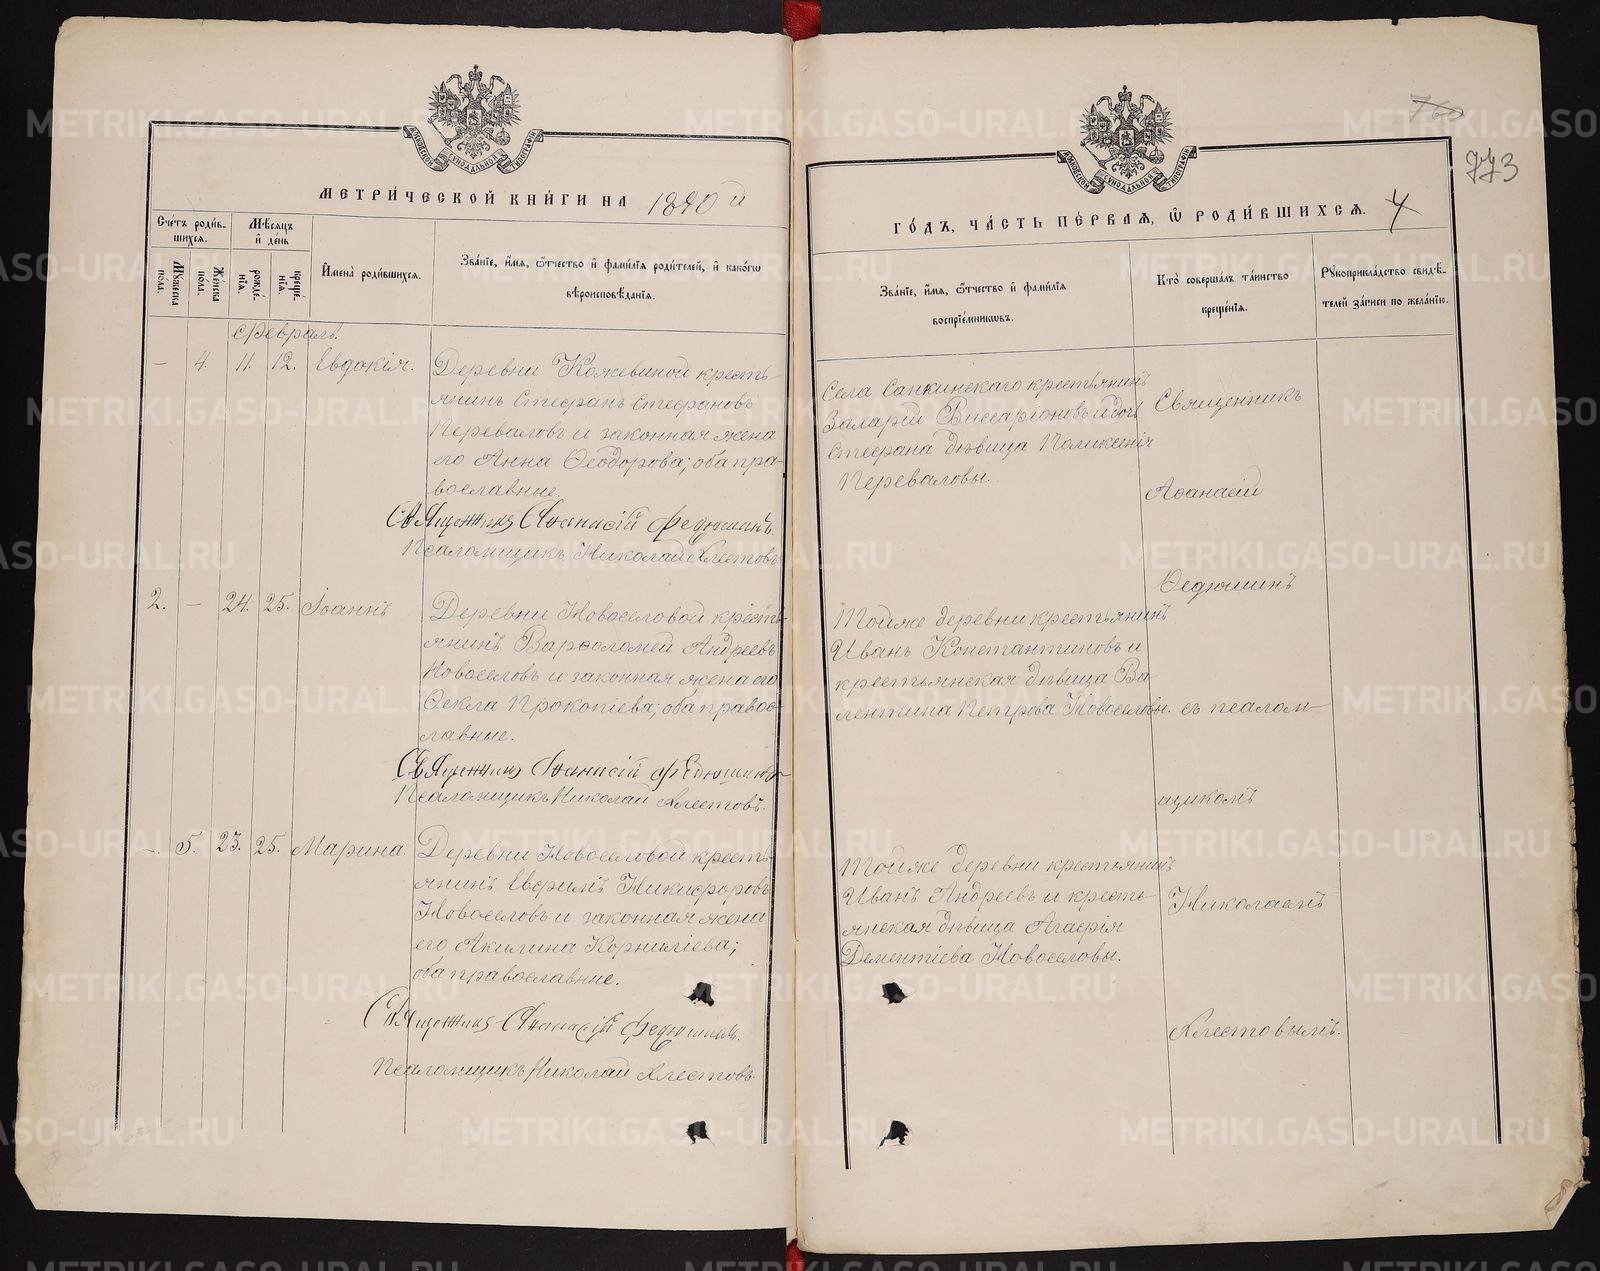 МЕТРИ́ЧЕСКОЙ КНИ́ГИ НА 1890 й
Сче́тъ роди́в-
шихся.
Мѣ́сяцъ
и҆ день
Мꙋ́жеска
пола.
Же́нска
пола.
рожде́-
нїя.
креще́-
нїя.
И҆мена̀ роди́вшихся.
Зва́нїе, и҆́мя, ѻ҆́тчество и҆ фами́лїя роди́телей, и҆ како́гѡ
вѣроисповѣ́данїя.
Февраль.
— 4. 11. 12. Евдокія. Деревни Кожевиной кресть-
янинъ Стефанъ Стефановъ
Переваловъ и законная жена
его Анна Ѳеодорова; оба пра-
вославные.
Священникъ Аѳанасій Федюшинъ.
Псаломщикъ Николай Хлестовъ.
2. — 24. 25. Іоаннъ Деревни Новоселовой кресть-
янинъ Варѳоломей Андреевъ
Новоселовъ и законная жена его
Ѳекла Прокопіева; оба право-
славные.
Священникъ Аѳанасій Федюшинъ
Псаломщикъ Николай Хлестовъ.
— 5. 23. 25. Марина Деревни Новоселовой кресть-
янинъ Евфимъ Никифоровъ
Новоселовъ и законная жена
его Акилина Корниліева;
оба православные.
Священникъ Аѳанасій Федюшинъ.
Псаломщикъ Николай Хлестовъ
МОСКОВСКОЙ СѴНОДАЛЬНОЙ ТИПОГРАФІИ
760
773
ГО́ДЪ, ЧА́СТЬ ПЕ́РВАЯ, Ѡ҆ РОДИ́ВШИХСЯ. 4
Зва́нїе, и҆́мя, ѻ҆́тчество и҆ фами́лїя
воспрїе́мникѡвъ.
Кто̀ соверша́лъ та́инство
креще́нїя.
Рꙋкоприкла́дство свидѣ́-
телей за́писи по жела́нїю.
Села Санкинскаго крестьянинъ
Виссаріоновъ и дочь
Стефана дѣвица Поликсенія
Переваловы.
Священникъ
Аѳанасій
Ѳедюшинъ
Тойже деревни крестьянинъ
Иванъ Константиновъ и
крестьянская дѣвица Ва-
лентина Петрова Новоселовы.
съ псалом-
щикомъ
Тойже деревни крестьянинъ
Иванъ Андреевъ и кресть-
янская дѣвица Агафія
Дементіева Новоселовы.
Николаемъ
Хлестовымъ.
METRIKI.GASO-URAL.RU